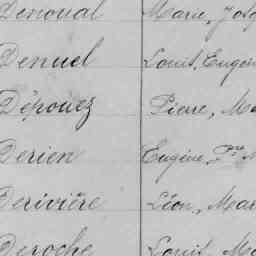 Denoual Marie, Josep
Denuel Louis, Eugèn
Dépouez Pierre, Ma
Derien Eugène, Fçois M
Derivière Léon, Mar
Deroche Louis, Ma